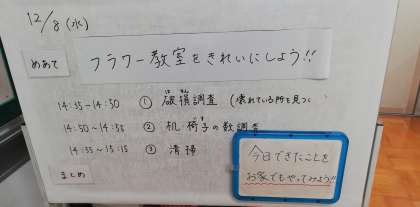 12/8(水)
めあて
フラワー教室をきれいにしよう!!
14:35~14:50 ① 破損調査 (壊れている所を見つ
14:50~14:55 ② 机・椅子の数調査
14:55~15:15 ③ 清掃
まとめ
今日できたことを
お家でもやってみよう!!